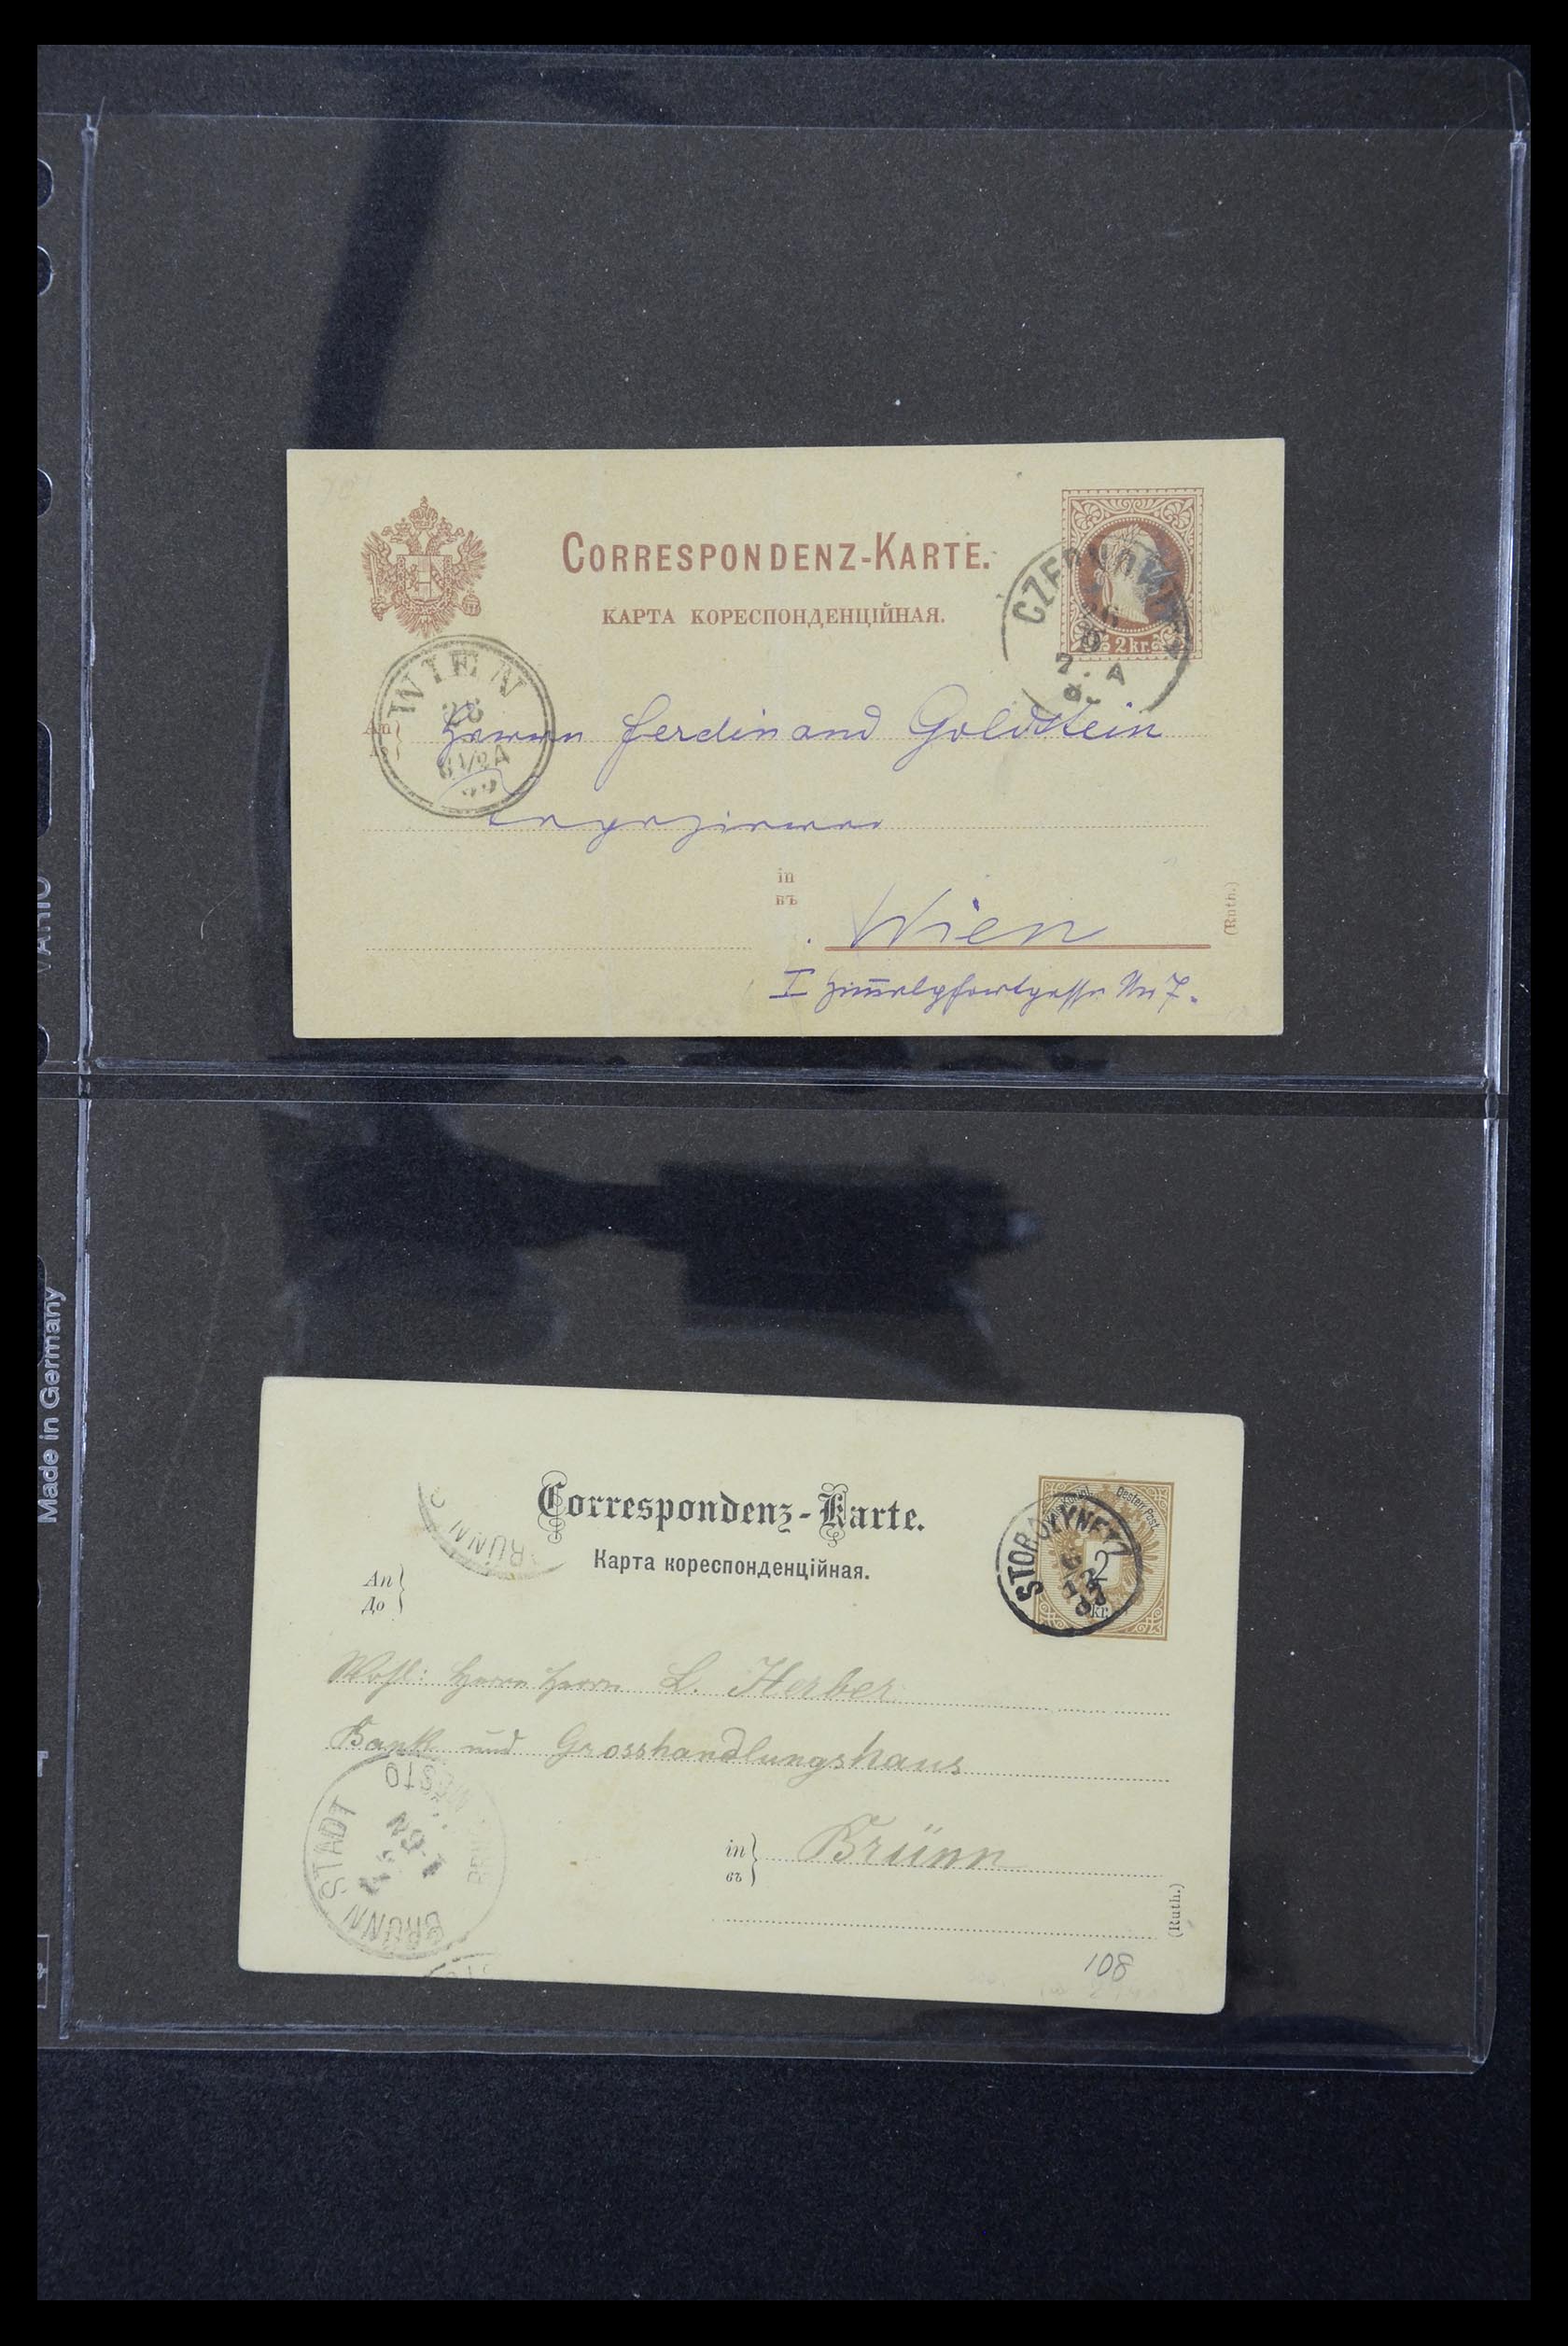 CORRESPONDENZ-KARTE.
КАРТА КОРЕСПОНДЕНЦІЙНАЯ.
2 kr.
CZERNOWITZ
26
9
7. A
WIEN
28
6 1/2 A
An
Herrn Ferdinand Goldstein
in
въ
Wien
(Ruth.)
I Himmelpfortgasse No 7.
VARIO
Made in Germany
Correspondenz-Karte.
Карта кореспонденційная.
Oesterr. Post.
2
kr.
STOROZYNETZ
BRÜNN
An
До
Wohl: Herrn Herrn L. Herber
Bank und Grosshandlungshaus
BRÜNN STADT
BRNO MĚSTO
in
въ
Brünn
(Ruth.)
108